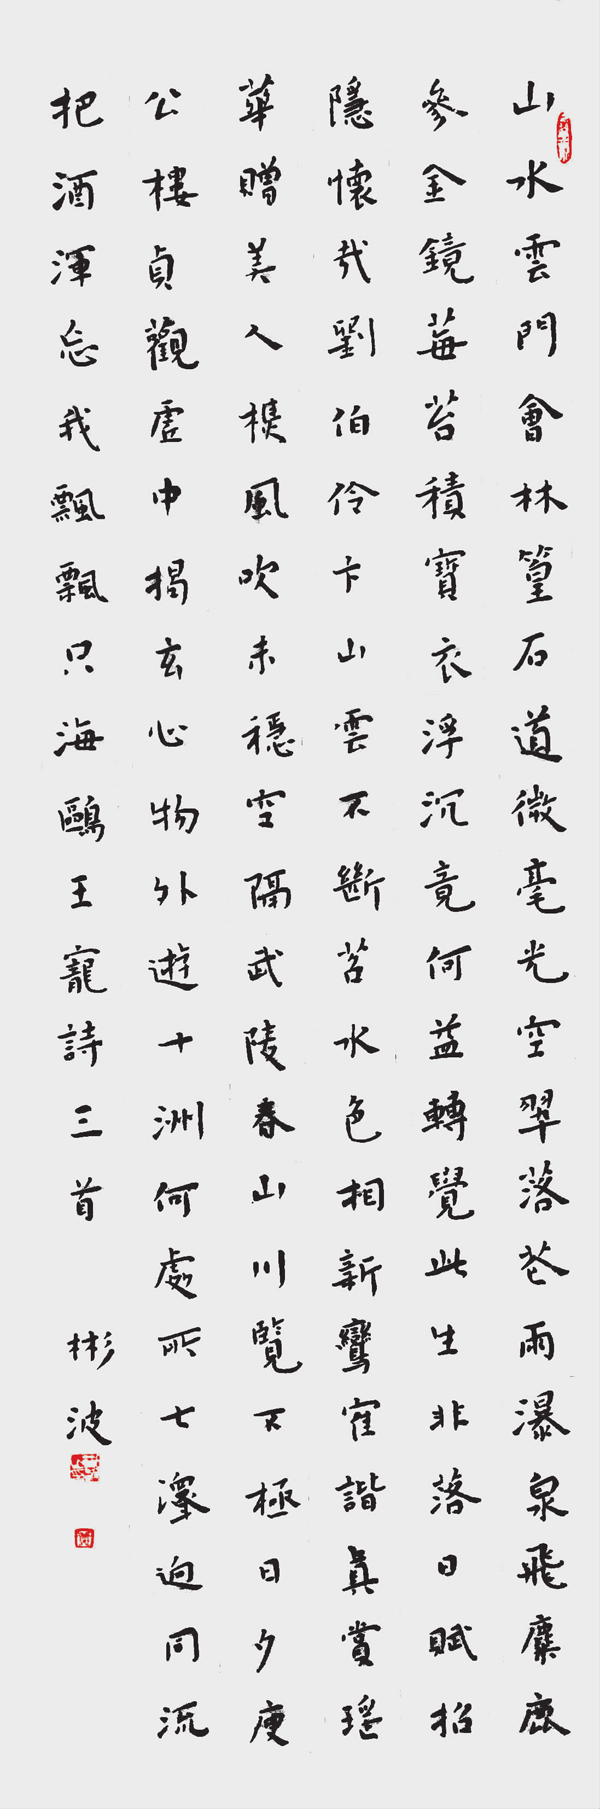 山水雲門會林篁石道微毫光空翠落花雨瀑泉飛麋鹿
參金鏡莓苔積寶衣浮沉竟何益轉覺此生非落日賦招
隱懷哉劉伯伶卞山雲不斷苕水色相新鸞隺諧眞賞瑤
華贈美人樵風吹未穩空隔武陵春山川覽不極日夕庾
公樓貞觀虛中揭玄心物外遊十洲何處所七澤迥同流
把酒渾忘我飄飄只海鷗王寵詩三首 彬波